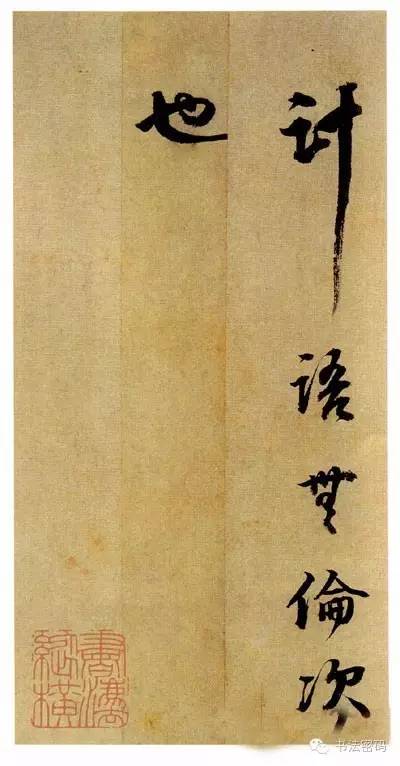 計語無倫次
也
书法密码